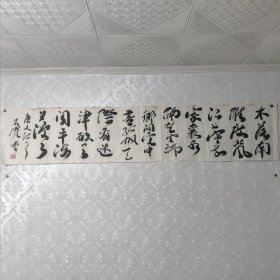 木落南
雁度北風
江上寒我
家襄水
隔楚雲端
鄉淚客中
盡孤帆天
際看迷
津欲有
問平海
夕漫漫
唐人詩